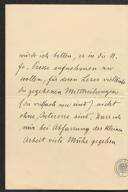 würde ich bitten, es in die N.
fr. Presse aufnehmen zu
wollen, für deren Leser vielleicht
die gegebenen Mittheilungen
(so einfach sie sind) nicht
ohne Interesse sind, dass ich
mir bei Abfassung der kleinen
Arbeit viele Mühe gegeben